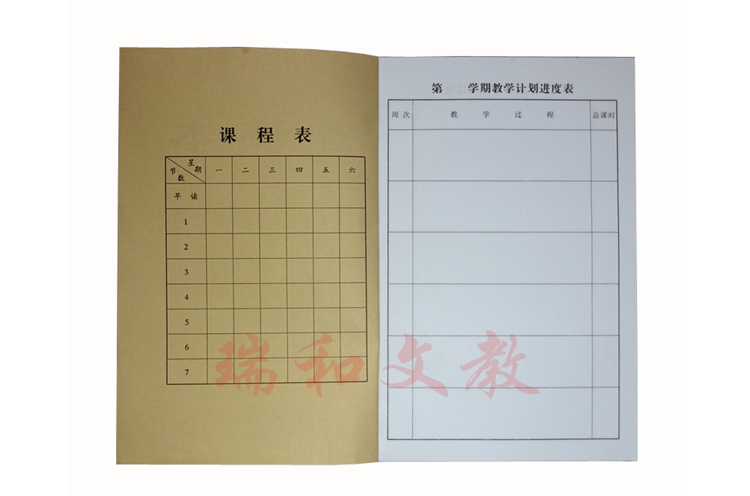 课程表
星期
节数
一 二 三 四 五 六
早读
1
2
3
4
5
6
7
第 学期教学计划进度表
周次 教学过程 总课时
瑞和文教